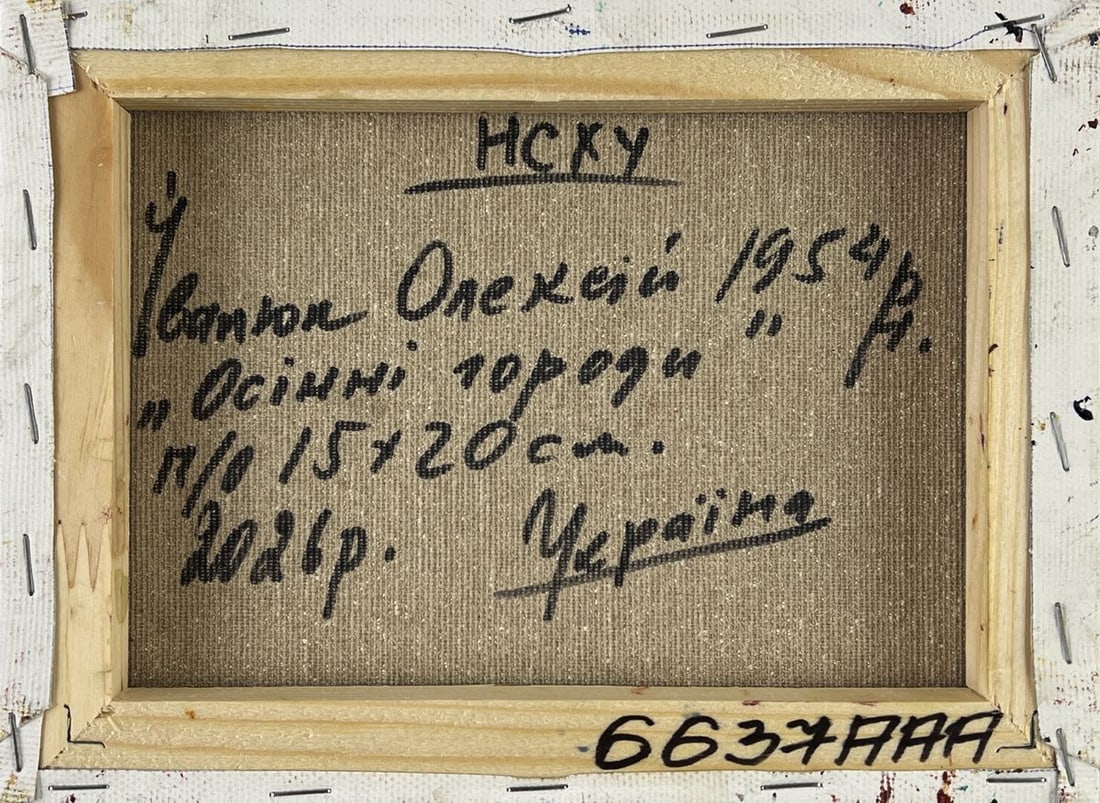 НСХУ
Іванюк Олексій 1954 р.н.
„Осінні городи"
п/о 15х20 см.
2026р. Україна
6637AAA